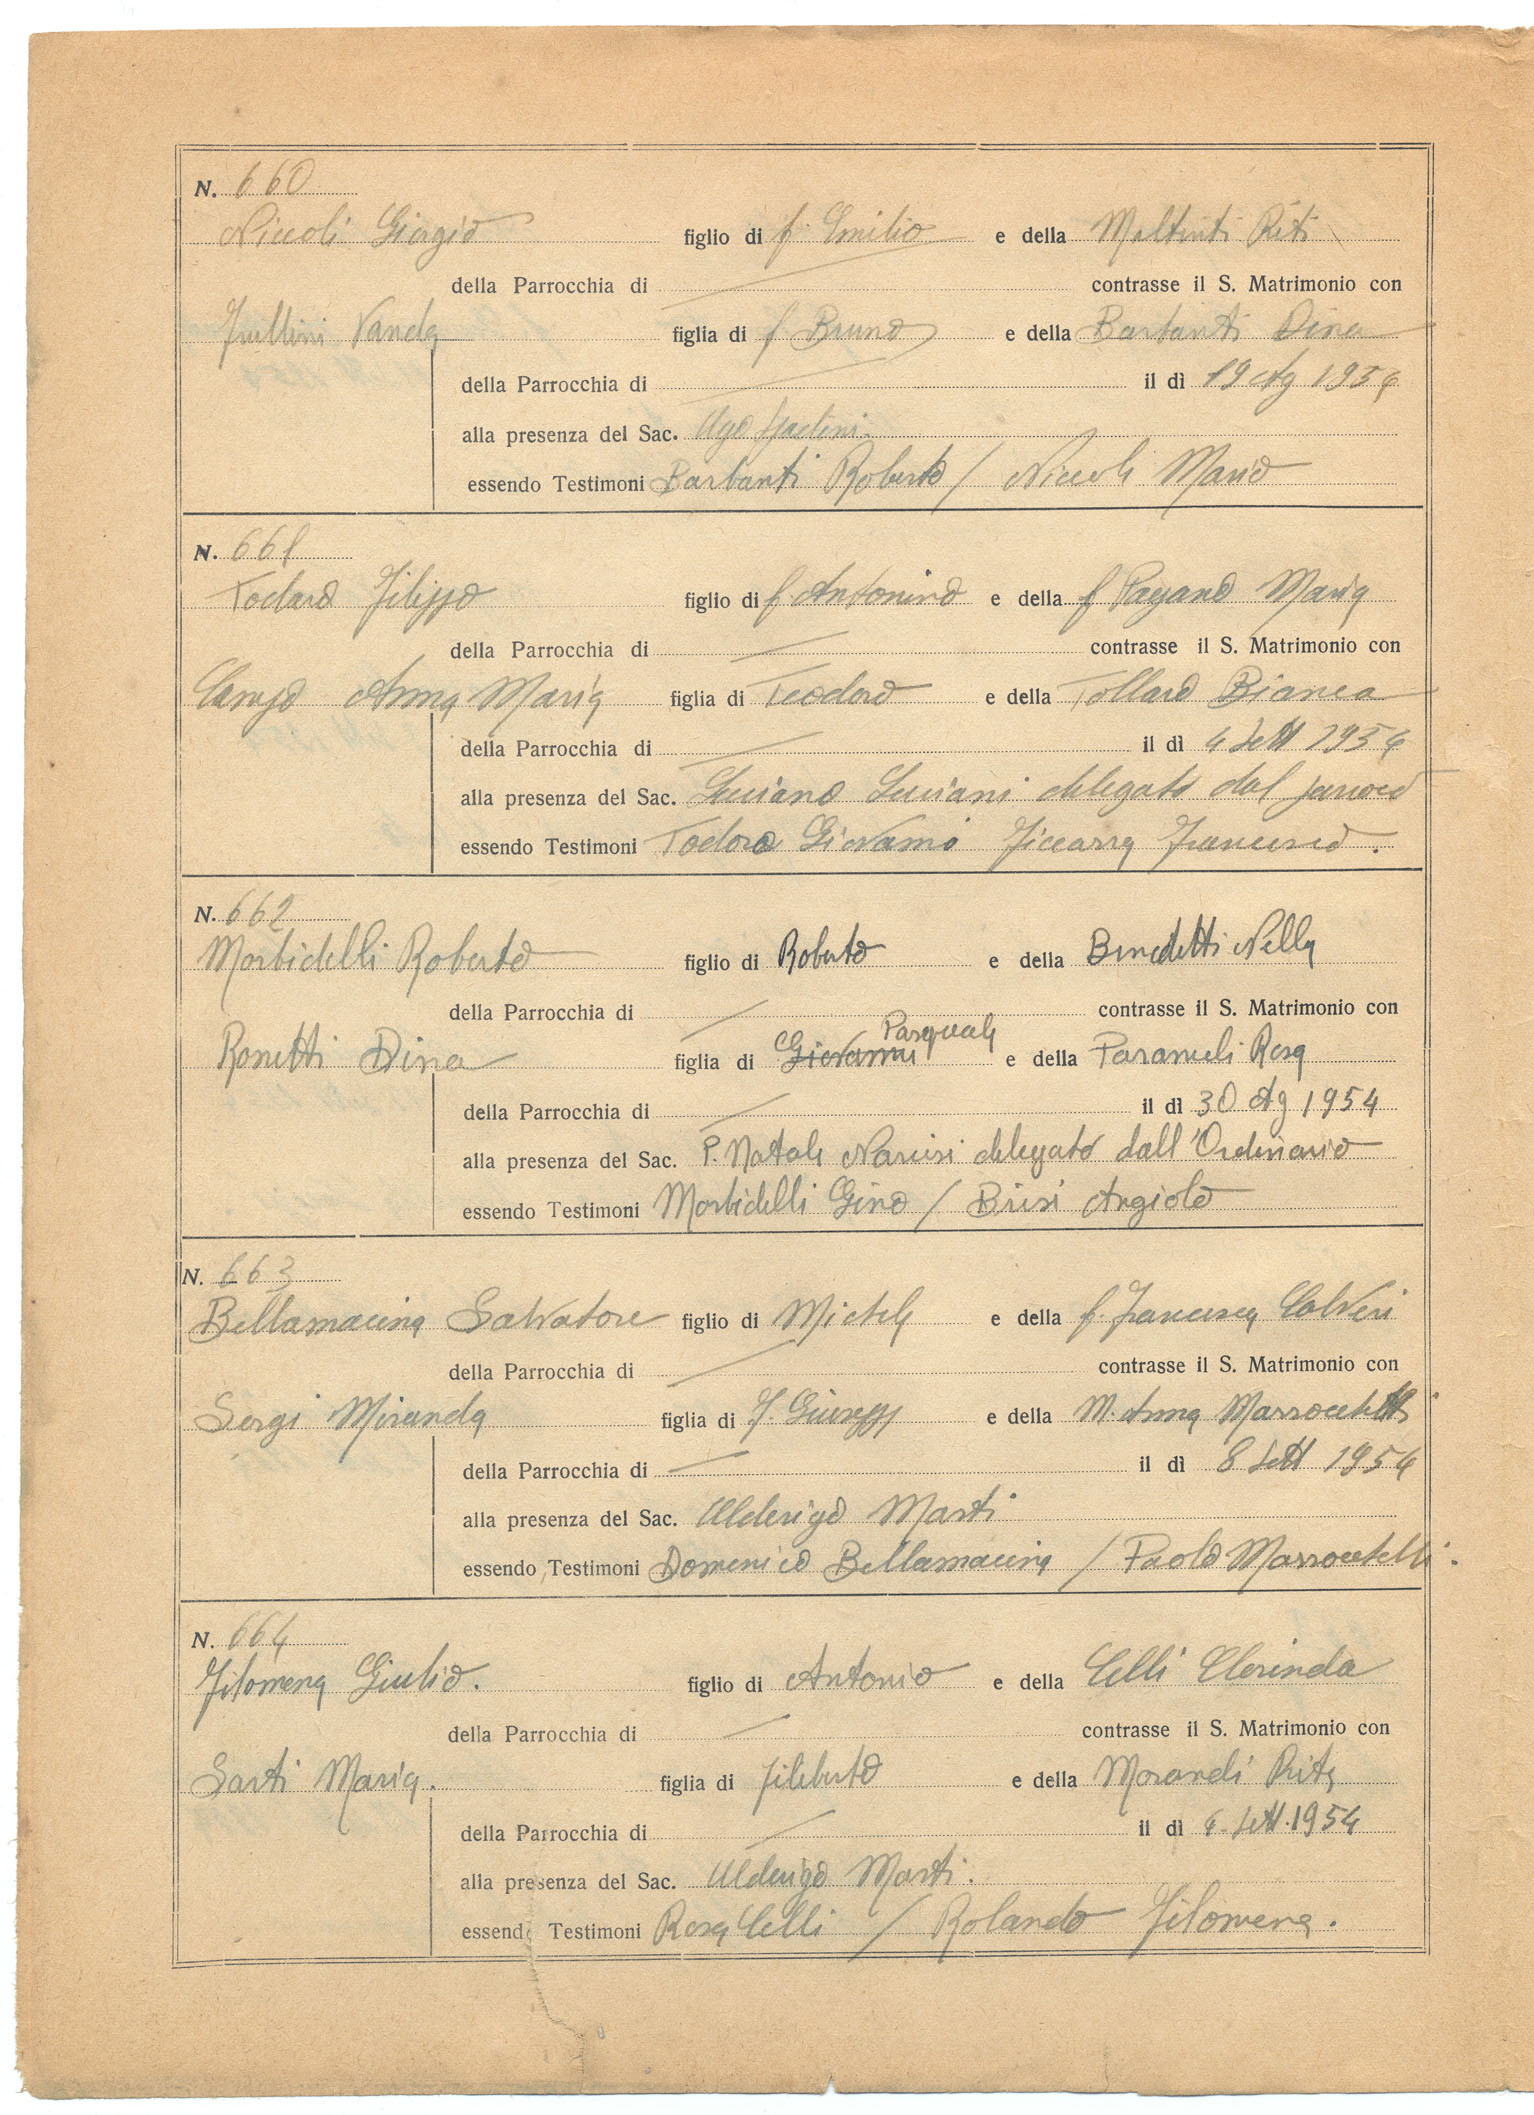 N. 660
Niccoli Giorgio figlio di f. Emilio e della Meltinti Rita
della Parrocchia di contrasse il S. Matrimonio con
Frullini Vanda figlia di f Bruno e della Barbanti Dina
della Parrocchia di il dì 19 Ag 1954
alla presenza del Sac. Ugo
essendo Testimoni Barbanti Roberto / Niccoli Mario
N. 661
Todaro Filippo figlio di f. Antonino e della f Pagano Maria
della Parrocchia di contrasse il S. Matrimonio con
Campo Anna Maria figlia di Teodoro e della Tollaro Bianca
della Parrocchia di il dì 4 Sett 1954
alla presenza del Sac. Luciano Luciani delegato dal parroco
essendo Testimoni Todoro Giovanni Ficarra Francesco.
N. 662
Morbidelli Roberto figlio di Roberto e della Benedetti Nella
della Parrocchia di contrasse il S. Matrimonio con
Pasquale
Ronetti Dina figlia di Giovanni e della Rosa
della Parrocchia di il dì 30 Ag 1954
alla presenza del Sac. P. Natale Narcisi delegato dall'Ordinario
essendo Testimoni Morbidelli Gino / Brisi Angiolo
N. 663
Bellamacina Salvatore figlio di Michele e della f. Francesca Calveri
della Parrocchia di contrasse il S. Matrimonio con
Sergi Miranda figlia di f. Giuseppe e della M. Anna Marrocchelli
della Parrocchia di il dì 8 Sett 1954
alla presenza del Sac. Alderigo Marti
essendo Testimoni Domenico Bellamacina / Paolo Marrocchelli.
N. 664
Filomena Giulio. figlio di Antonio e della Celli Clorinda
della Parrocchia di contrasse il S. Matrimonio con
Sarti Maria. figlia di Filiberto e della Morandi Rita
della Parrocchia di il dì 4. Sett. 1954
alla presenza del Sac. Alderigo Marti.
essendo Testimoni Rosa Celli / Rolando Filomena.